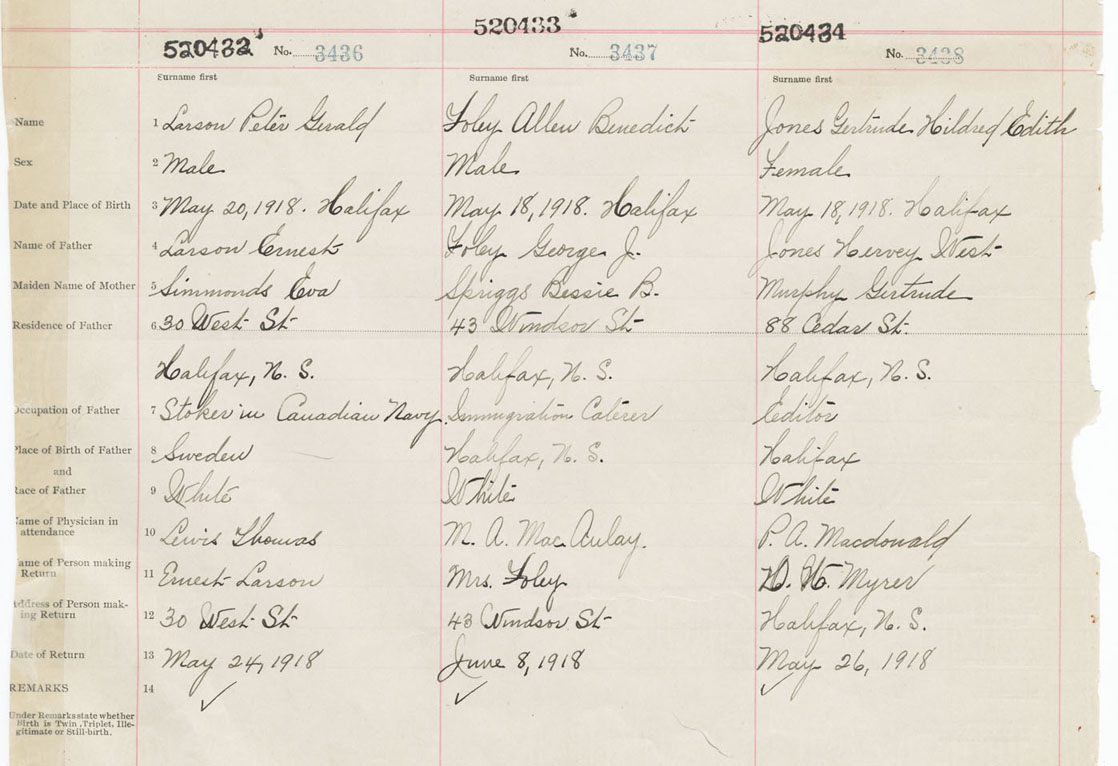 520432 No. 3436 520433 No. 3437 520434 No. 3438
Surname first Surname first Surname first
Name 1 Larson Peter Gerald Foley Allen Benedict Jones Gertrude Hildred Edith
Sex 2 Male Male Female
Date and Place of Birth 3 May 20, 1918. Halifax May 18, 1918. Halifax May 18, 1918. Halifax
Name of Father 4 Larson Ernest Foley George J. Jones Hervey West
Maiden Name of Mother 5 Simmonds Eva Spriggs Bessie B. Murphy Gertrude
Residence of Father 6 30 West St 43 Windsor St 88 Cedar St.
Halifax, N. S. Halifax, N. S. Halifax, N. S.
Occupation of Father 7 Stoker in Canadian Navy Immigration Caterer Editor
Place of Birth of Father 8 Sweden Halifax, N. S. Halifax
and
Race of Father 9 White White White
Name of Physician in
attendance 10 Lewis Thomas M. A. MacAulay. P. A. Macdonald
Name of Person making
Return 11 Ernest Larson Mrs. Foley D. H. Myrer
Address of Person mak-
ing Return 12 30 West St 43 Windsor St Halifax, N. S.
Date of Return 13 May 24, 1918 June 8, 1918 May 26, 1918
REMARKS 14 ✓ ✓ ✓
Under Remarks state whether
Birth is Twin, Triplet, Ille-
gitimate or Still-birth.